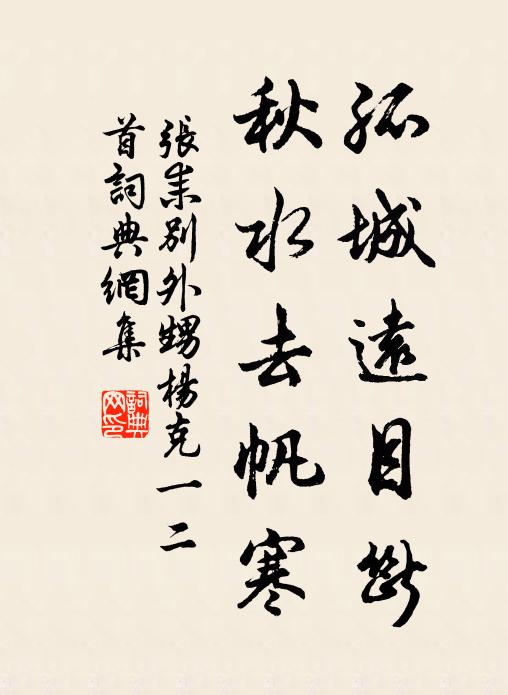 孤城遠目斷
秋水去帆寒
張耒別外甥楊克一二
首詞典網集
詞典网印